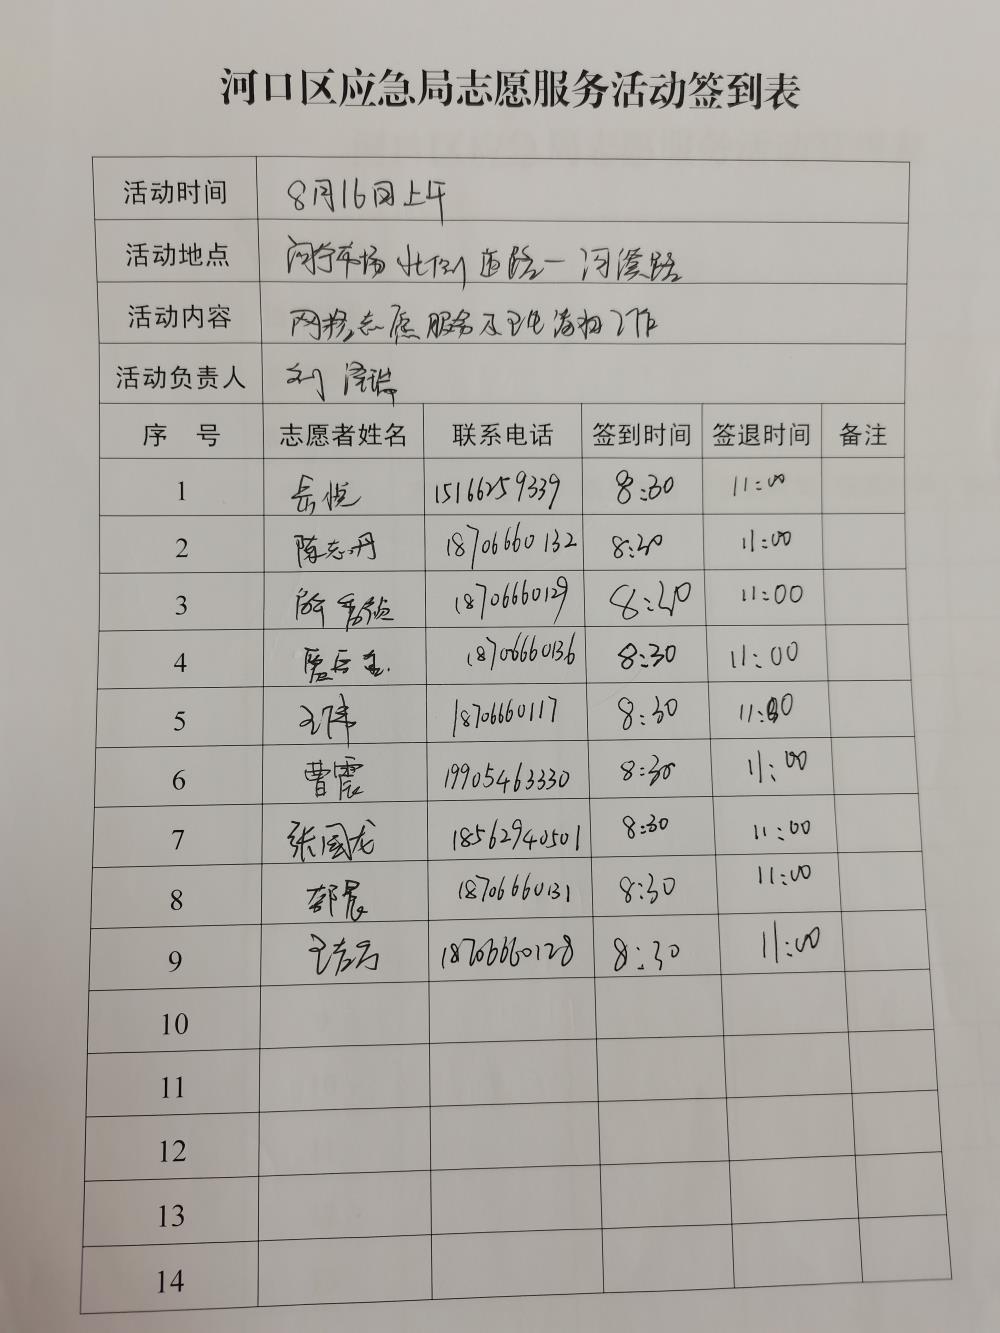 河口区应急局志愿服务活动签到表
活动时间 8月16日上午
活动地点 市场北侧道路一河滨路
活动内容 网格志愿服务及卫生清扫工作
活动负责人 刘泽瑞
序 号 志愿者姓名 联系电话 签到时间 签退时间 备注
1 岳悦 15166259339 8:30 11:00
2 陈志丹 18706660132 8:30 11:00
3 18706660129 8:30 11:00
4 18706660136 8:30 11:00
5 王伟 18706660117 8:30 11:00
6 曹震 19905463330 8:30 11:00
7 张国龙 18562940501 8:30 11:00
8 18706660131 8:30 11:00
9 18706660128 8:30 11:00
10
11
12
13
14